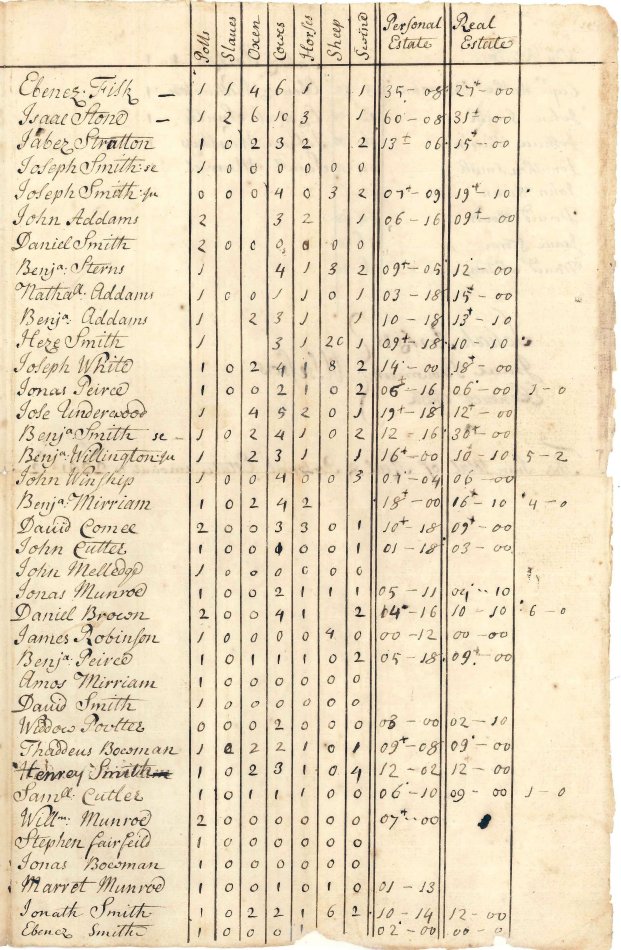 Polls Slaves Oxen Cows Horses Sheep Swine Personal Estate Real Estate
Ebenez: Fisk – 1 1 4 6 1 1 35 - 08 27 - 00
Isaac Stone – 1 2 6 10 3 1 60 - 08 31 - 00
Jabez Stratton 1 0 2 3 2 2 13 06 15 - 00
Joseph Smith: se 1 0 0 0 0 0 0
Joseph Smith: ju 0 0 0 4 0 3 2 07 - 09 19 - 10
John Addams 2 3 2 1 06 - 16 09 - 00
Daniel Smith 2 0 0 0 0 0 0
Benja: Sterns 1 4 1 3 2 09 - 05 12 - 00
Nathall: Addams 1 0 0 1 1 0 1 03 - 18 15 - 00
Benja: Addams 1 2 3 1 1 10 - 18 13 - 10
Heze Smith 1 3 1 20 1 09 - 18 10 - 10
Joseph White 1 0 2 4 1 8 2 14 - 00 18 - 00
Jonas Peirce 1 0 0 2 1 0 2 06 - 16 06 - 00 1 - 0
Jose Underwood 1 4 5 2 0 1 19 - 18 12 - 00
Benja: Smith se – 1 0 2 4 1 0 2 12 - 16 30 - 00
Benja: Willington: ju 1 2 3 1 1 16 - 00 10 - 10 5 - 2
John Winship 1 0 0 4 0 0 3 07 - 04 06 - 00
Benja: Mirriam 1 0 2 4 2 18 - 00 16 - 10 4 - 0
David Comee 2 0 0 3 3 0 1 10 - 18 09 - 00
John Cutler 1 0 0 0 0 1 01 - 18 03 - 00
John Melledge 1 0 0 0 0 0 0
Jonas Munroe 1 0 0 2 1 1 1 05 - 11 04 - 10
Daniel Brown 2 0 0 4 1 2 14 - 16 10 - 10 6 - 0
James Robinson 1 0 0 0 0 4 0 00 - 12 00 - 00
Benja: Peirce 1 0 1 1 1 0 2 05 - 18 09 - 00
Amos Mirriam 1 0 0 0 0 0 0
David Smith 1 0 0 0 0 0 0
Widow Poulter 0 0 0 2 0 0 0 03 - 00 02 - 10
Thaddeus Bowman 1 2 2 1 0 1 09 - 08 09 - 00
Henrey Smith 1 0 2 3 1 0 4 12 - 02 12 - 00
Samll: Cutler 1 0 1 1 1 0 0 06 - 10 09 - 00 1 - 0
Willm: Munroe 2 0 0 0 0 0 0 07 - 00
Stephen fairfeild 1 0 0 0 0 0 0
Jonas Bowman 1 0 0 0 0 0 0
Marret Munroe 1 0 0 1 0 1 0 01 - 13
Jonath Smith 1 0 2 2 1 6 2 10 - 14 12 - 00
Ebenez Smith 1 0 0 0 1 0 02 - 00 00 - 0